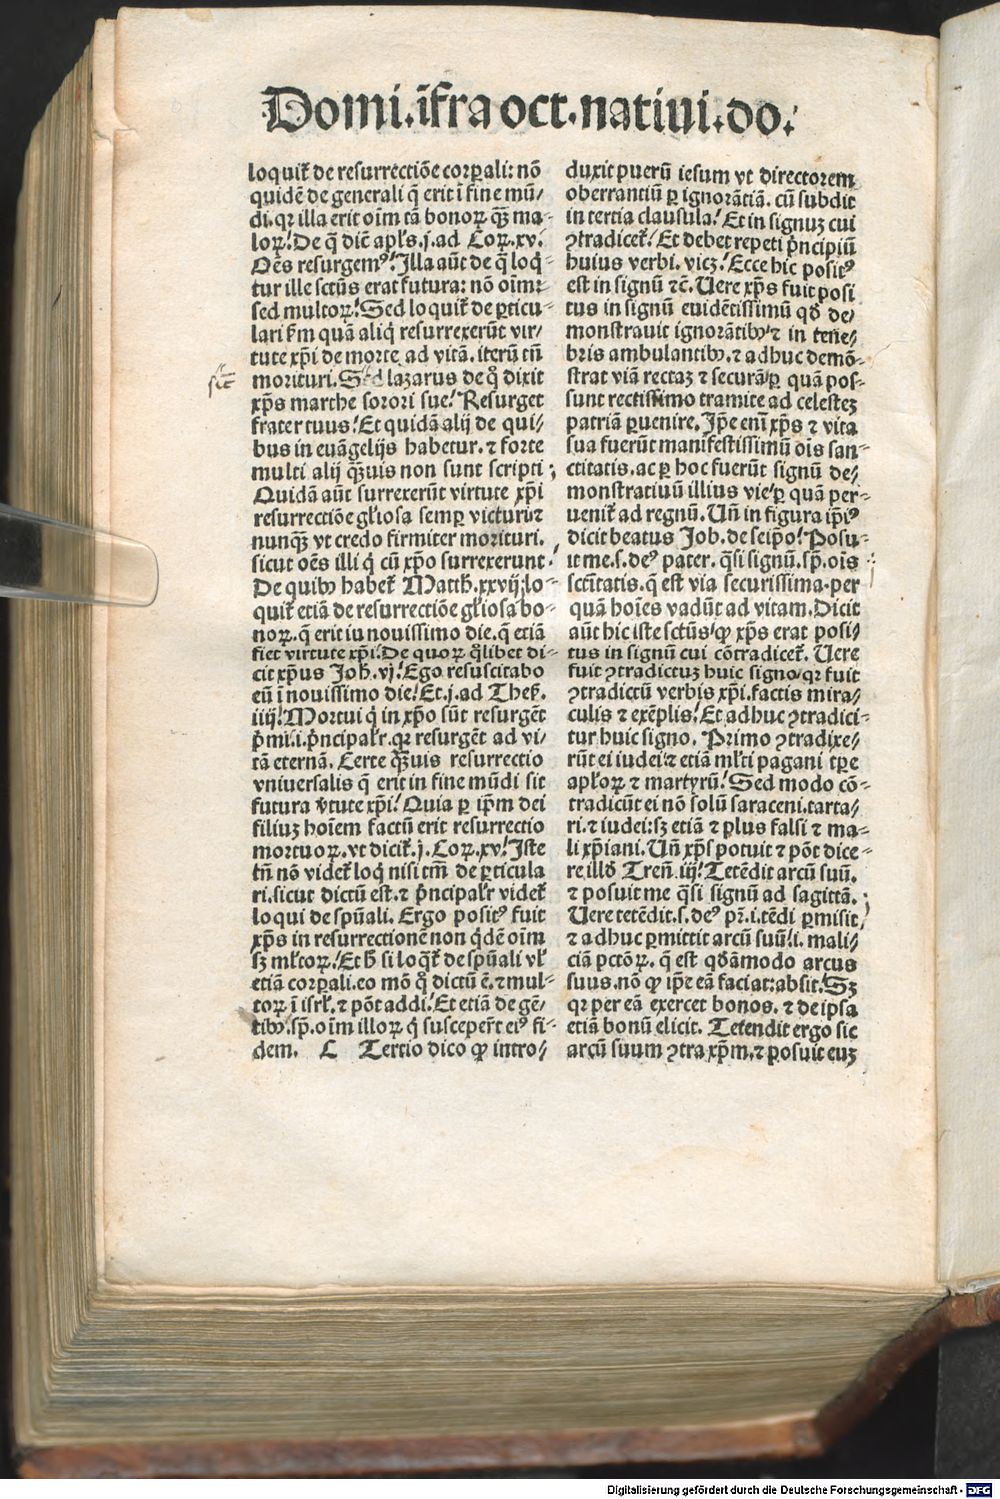 Domi.ĩfra oct.natiui.do.
loquit᷑ de resurrectiõe corꝑali: nõ
quidẽ de generali q̃ erit ĩ fine mũ/
di.qꝛ illa erit oĩm tã bonoꝝ qꝫ̃ ma-
loꝝ! De q̃ dic̃ apl̃s.j.ad Coꝝ.xv.
Oẽs resurgemꝰ! Illa aũt de q̃ loq̃-
tur ille sctũs erat futura: nõ oĩm:
sed multoꝝ! Sed loquit᷑ de ꝑticu-
lari ẜm quã aliq̃ resurrexerũt vir/
tute xp̃i de morte ad vitã.iterũ tñ
morituri. Sed lazarus de q̊ dixit
xp̃s marthe sorori sue! Resurget
frater tuus! Et quidã alij de qui-
bus in euãgelijs habetur.⁊ forte
multi alij qꝫ̃uis non sunt scripti:
Quidã aũt surrexerũt virtute xp̃i
resurrectiõe gl̃iosa semꝑ victuri:⁊
nunqꝫ̃ vt credo firmiter morituri.
sicut oẽs illi q̇ cũ xp̃o surrexerunt.
De quibꝰ habet᷑ Matth̃.xxvij.lo-
quit᷑ etiã de resurrectiõe gl̃iosa bo-
noꝝ.q̃ erit iu nouissimo die.q̃ etiã
fiet virtute xp̃i. De quoꝝ q̊libet di-
cit xp̃us Joh̃.vj! Ego resuscitabo
eũ ĩ nouissimo die! Et.j.ad Thes̃.
iiij! Mortui q̇ in xp̃o sũt resurgẽt
p̃mi.i.p̃ncipal̃r.qꝛ resurgẽt ad vi-
tã eternã. Certe qꝫ̃uis resurrectio
vniuersalis q̃ erit in fine mũdi sit
futura ṽtute xp̃i! Quia ꝑ ip̃m dei
filiuꝫ hoĩem factũ erit resurrectio
mortuoꝝ.vt dicit᷑.j.Coꝝ.xv! Iste
tñ nõ videt᷑ loq̇ nisi tm̃ de ꝑticula
ri.sicut dictũ est.⁊ p̃ncipal̃r videt᷑
loqui de spũali. Ergo positꝰ fuit
xp̃s in resurrectionẽ non q̇dẽ oĩm
sꝫ ml̃toꝝ! Et h̃ si loq̃t᷑ de spũali vl̃
etiã corꝑali.eo mõ q̊ dictũ ẽ.⁊ mul-
toꝝ ĩ isrl̃.⁊ põt addi! Et etiã de gẽ-
tibꝰ.sp̃.oĩm illoꝝ q̇ susceper̃t eiꝰ fi-
dem. C Tertio dico ꝙ intro/
sic̃
duxit puerũ iesum vt directorem
oberrantiũ ꝑ ignorãtiã. cũ subdit
in tertia clausula! Et in signuꝫ cui
ꝯtradicet᷑! Et debet repeti p̃ncipiũ
huius verbi.vicꝫ! Ecce hic positꝰ
est in signũ ⁊c̃. Uere xp̃s fuit posi
tus in signũ euidẽtissimũ qd̃ de/
monstrauit ignorãtibꝰ ⁊ in tene/
bris ambulantibꝰ.⁊ adhuc demõ-
strat viã rectaꝫ ⁊ securã/ꝑ quã pos-
sunt rectissimo tramite ad celesteꝫ
patriã ꝑuenire. Ip̃e enĩ xp̃s ⁊ vita
sua fuerũt manifestissimũ oĩs san-
ctitatis.ac ꝑ hoc fuerũt signũ de/
monstratiuũ illius vie/ꝑ quã per-
uenit᷑ ad regnũ. Uñ in figura ip̃iꝰ
dicit beatus Job.de seip̃o! Posu-
it me.s.deꝰ pater.q̃si signũ.sp̃.oĩs
sctĩtatis.q̃ est via securissima.per
quã hoĩes vadũt ad vitam. Dicit
aũt hic iste sctũs/ꝙ xp̃s erat posi/
tus in signũ cui cõtradicet᷑. Uere
fuit ꝯtradictuꝫ huic signo/qꝛ fuit
ꝯtradictũ verbis xp̃i.factis mira/
culis ⁊ exẽplis! Et adhuc ꝯtradici-
tur huic signo. Primo ꝯtradixe/
rũt ei iudei:⁊ etiã ml̃ti pagani tꝑe
apl̃oꝝ ⁊ martyrũ! Sed modo cõ-
tradicũt ei nõ solũ saraceni.tarta/
ri.⁊ iudei:sꝫ etiã ⁊ plus falsi ⁊ ma-
li xp̃iani. Uñ xp̃s potuit ⁊ põt dice-
re illd̃ Treñ.iij! Tetẽdit arcũ suũ.
⁊ posuit me q̃si signũ ad sagittã.
Uere tetẽdit.s.deꝰ pr̃.i.tẽdi ꝑmisit
⁊ adhuc ꝑmittit arcũ suũ/.i.mali/
ciã pctõꝝ. q̃ est qd̃ãmodo arcus
suus.nõ ꝙ ip̃e eã faciat:absit! Sꝫ
qꝛ per eã exercet bonos.⁊ de ipsa
etiã bonũ elicit. Tetendit ergo sic
arcũ suum ꝯtra xp̃m.⁊ posuit euꝫ
Digitalisierung gefördert durch die Deutsche Forschungsgemeinschaft - DFG